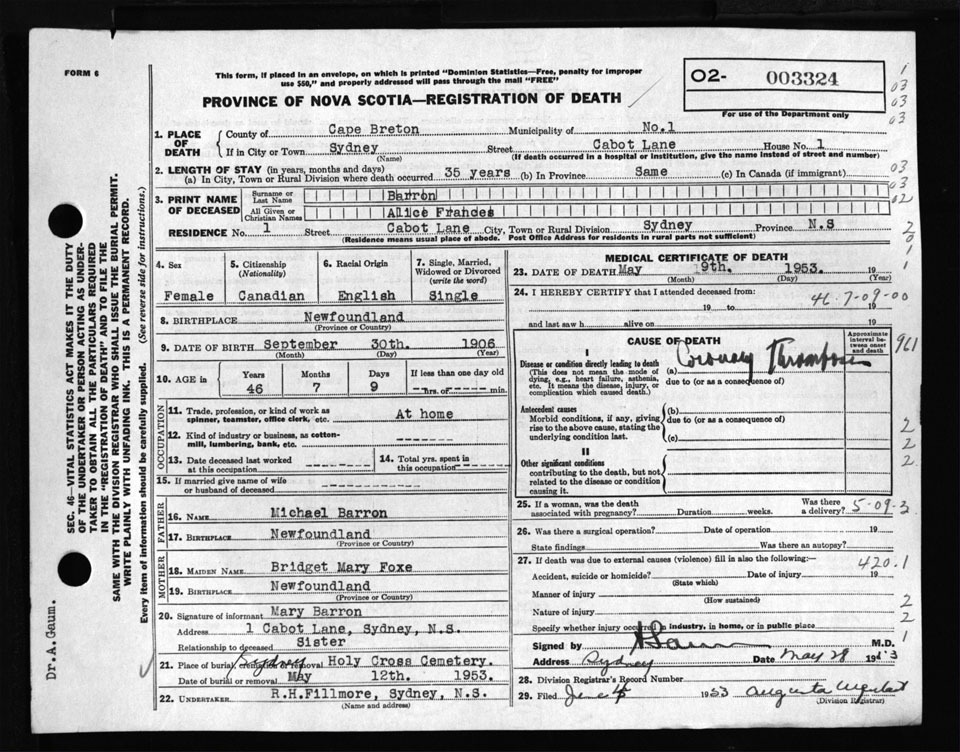 FORM 6
This form, if placed in an envelope, on which is printed "Dominion Statistics—Free, penalty for improper
use $50," and properly addressed will pass through the mail "FREE"
PROVINCE OF NOVA SCOTIA—REGISTRATION OF DEATH
O2- 003324
For use of the Department only
1. PLACE OF DEATH
County of Cape Breton Municipality of No.1
If in City or Town Sydney Street Cabot Lane House No. 1
(Name) (If death occurred in a hospital or institution, give the name instead of street and number)
2. LENGTH OF STAY (in years, months and days)
(a) In City, Town or Rural Division where death occurred 35 years (b) In Province Same (c) In Canada (if immigrant)
3. PRINT NAME OF DECEASED
Surname or Last Name Barron
All Given or Christian Names Alice Frances
RESIDENCE No. 1 Street Cabot Lane City, Town or Rural Division Sydney Province N.S
(Residence means usual place of abode. Post Office Address for residents in rural parts not sufficient)
4. Sex Female
5. Citizenship (Nationality) Canadian
6. Racial Origin English
7. Single, Married, Widowed or Divorced (write the word) Single
8. BIRTHPLACE Newfoundland
(Province or Country)
9. DATE OF BIRTH September 30th. 1906
(Month) (Day) (Year)
10. AGE in Years 46 Months 7 Days 9 If less than one day old hrs. or min.
OCCUPATION
11. Trade, profession, or kind of work as spinner, teamster, office clerk, etc. At home
12. Kind of industry or business, as cotton-mill, lumbering, bank, etc.
13. Date deceased last worked at this occupation
14. Total yrs. spent in this occupation
15. If married give name of wife or husband of deceased
FATHER
16. NAME Michael Barron
17. BIRTHPLACE Newfoundland
(Province or Country)
MOTHER
18. MAIDEN NAME Bridget Mary Foxe
19. BIRTHPLACE Newfoundland
(Province or Country)
20. Signature of informant Mary Barron
Address 1 Cabot Lane, Sydney, N.S.
Relationship to deceased Sister
21. Place of burial, cremation or removal Sydney Holy Cross Cemetery.
Date of burial or removal May 12th. 1953.
22. UNDERTAKER R.H.Fillmore, Sydney, N.S.
(Name and address)
MEDICAL CERTIFICATE OF DEATH
23. DATE OF DEATH May 9th. 1953. 19
(Month) (Day) (Year)
24. I HEREBY CERTIFY that I attended deceased from:
46-7-09-00
19 to 19
and last saw h alive on 19
CAUSE OF DEATH
Approximate interval between onset and death
I
Disease or condition directly leading to death
(This does not mean the mode of dying, e.g., heart failure, asthenia, etc. It means the disease, injury, or complication which caused death.)
(a) Coronary Thrombosis
due to (or as a consequence of)
Antecedent causes
Morbid conditions, if any, giving rise to the above cause, stating the underlying condition last.
(b)
due to (or as a consequence of)
(c)
II
Other significant conditions
contributing to the death, but not related to the disease or condition causing it.
25. If a woman, was the death associated with pregnancy? Duration weeks. Was there a delivery? 5-09-3
26. Was there a surgical operation? Date of operation 19
State findings Was there an autopsy?
27. If death was due to external causes (violence) fill in also the following: 420.1
Accident, suicide or homicide? Date of injury 19
(State which)
Manner of injury
(How sustained)
Nature of injury
Specify whether injury occurred in industry, in home, or in public place
Signed by M.D.
Address Sydney Date May 28 1953
28. Division Registrar's Record Number
29. Filed June 4 1953 Augusta
(Division Registrar)
1
03
03
03
03
03
02
2
0
1
961
2
2
2
2
2
1
SEC. 46—VITAL STATISTICS ACT MAKES IT THE DUTY
OF THE UNDERTAKER OR PERSON ACTING AS UNDER-
TAKER TO OBTAIN ALL THE PARTICULARS REQUIRED
IN THE "REGISTRATION OF DEATH" AND TO FILE THE
SAME WITH THE DIVISION REGISTRAR WHO SHALL ISSUE THE BURIAL PERMIT.
WRITE PLAINLY WITH UNFADING INK. THIS IS A PERMANENT RECORD.
Every item of information should be carefully supplied. (See reverse side for instructions.)
Dr.A.Gaum.